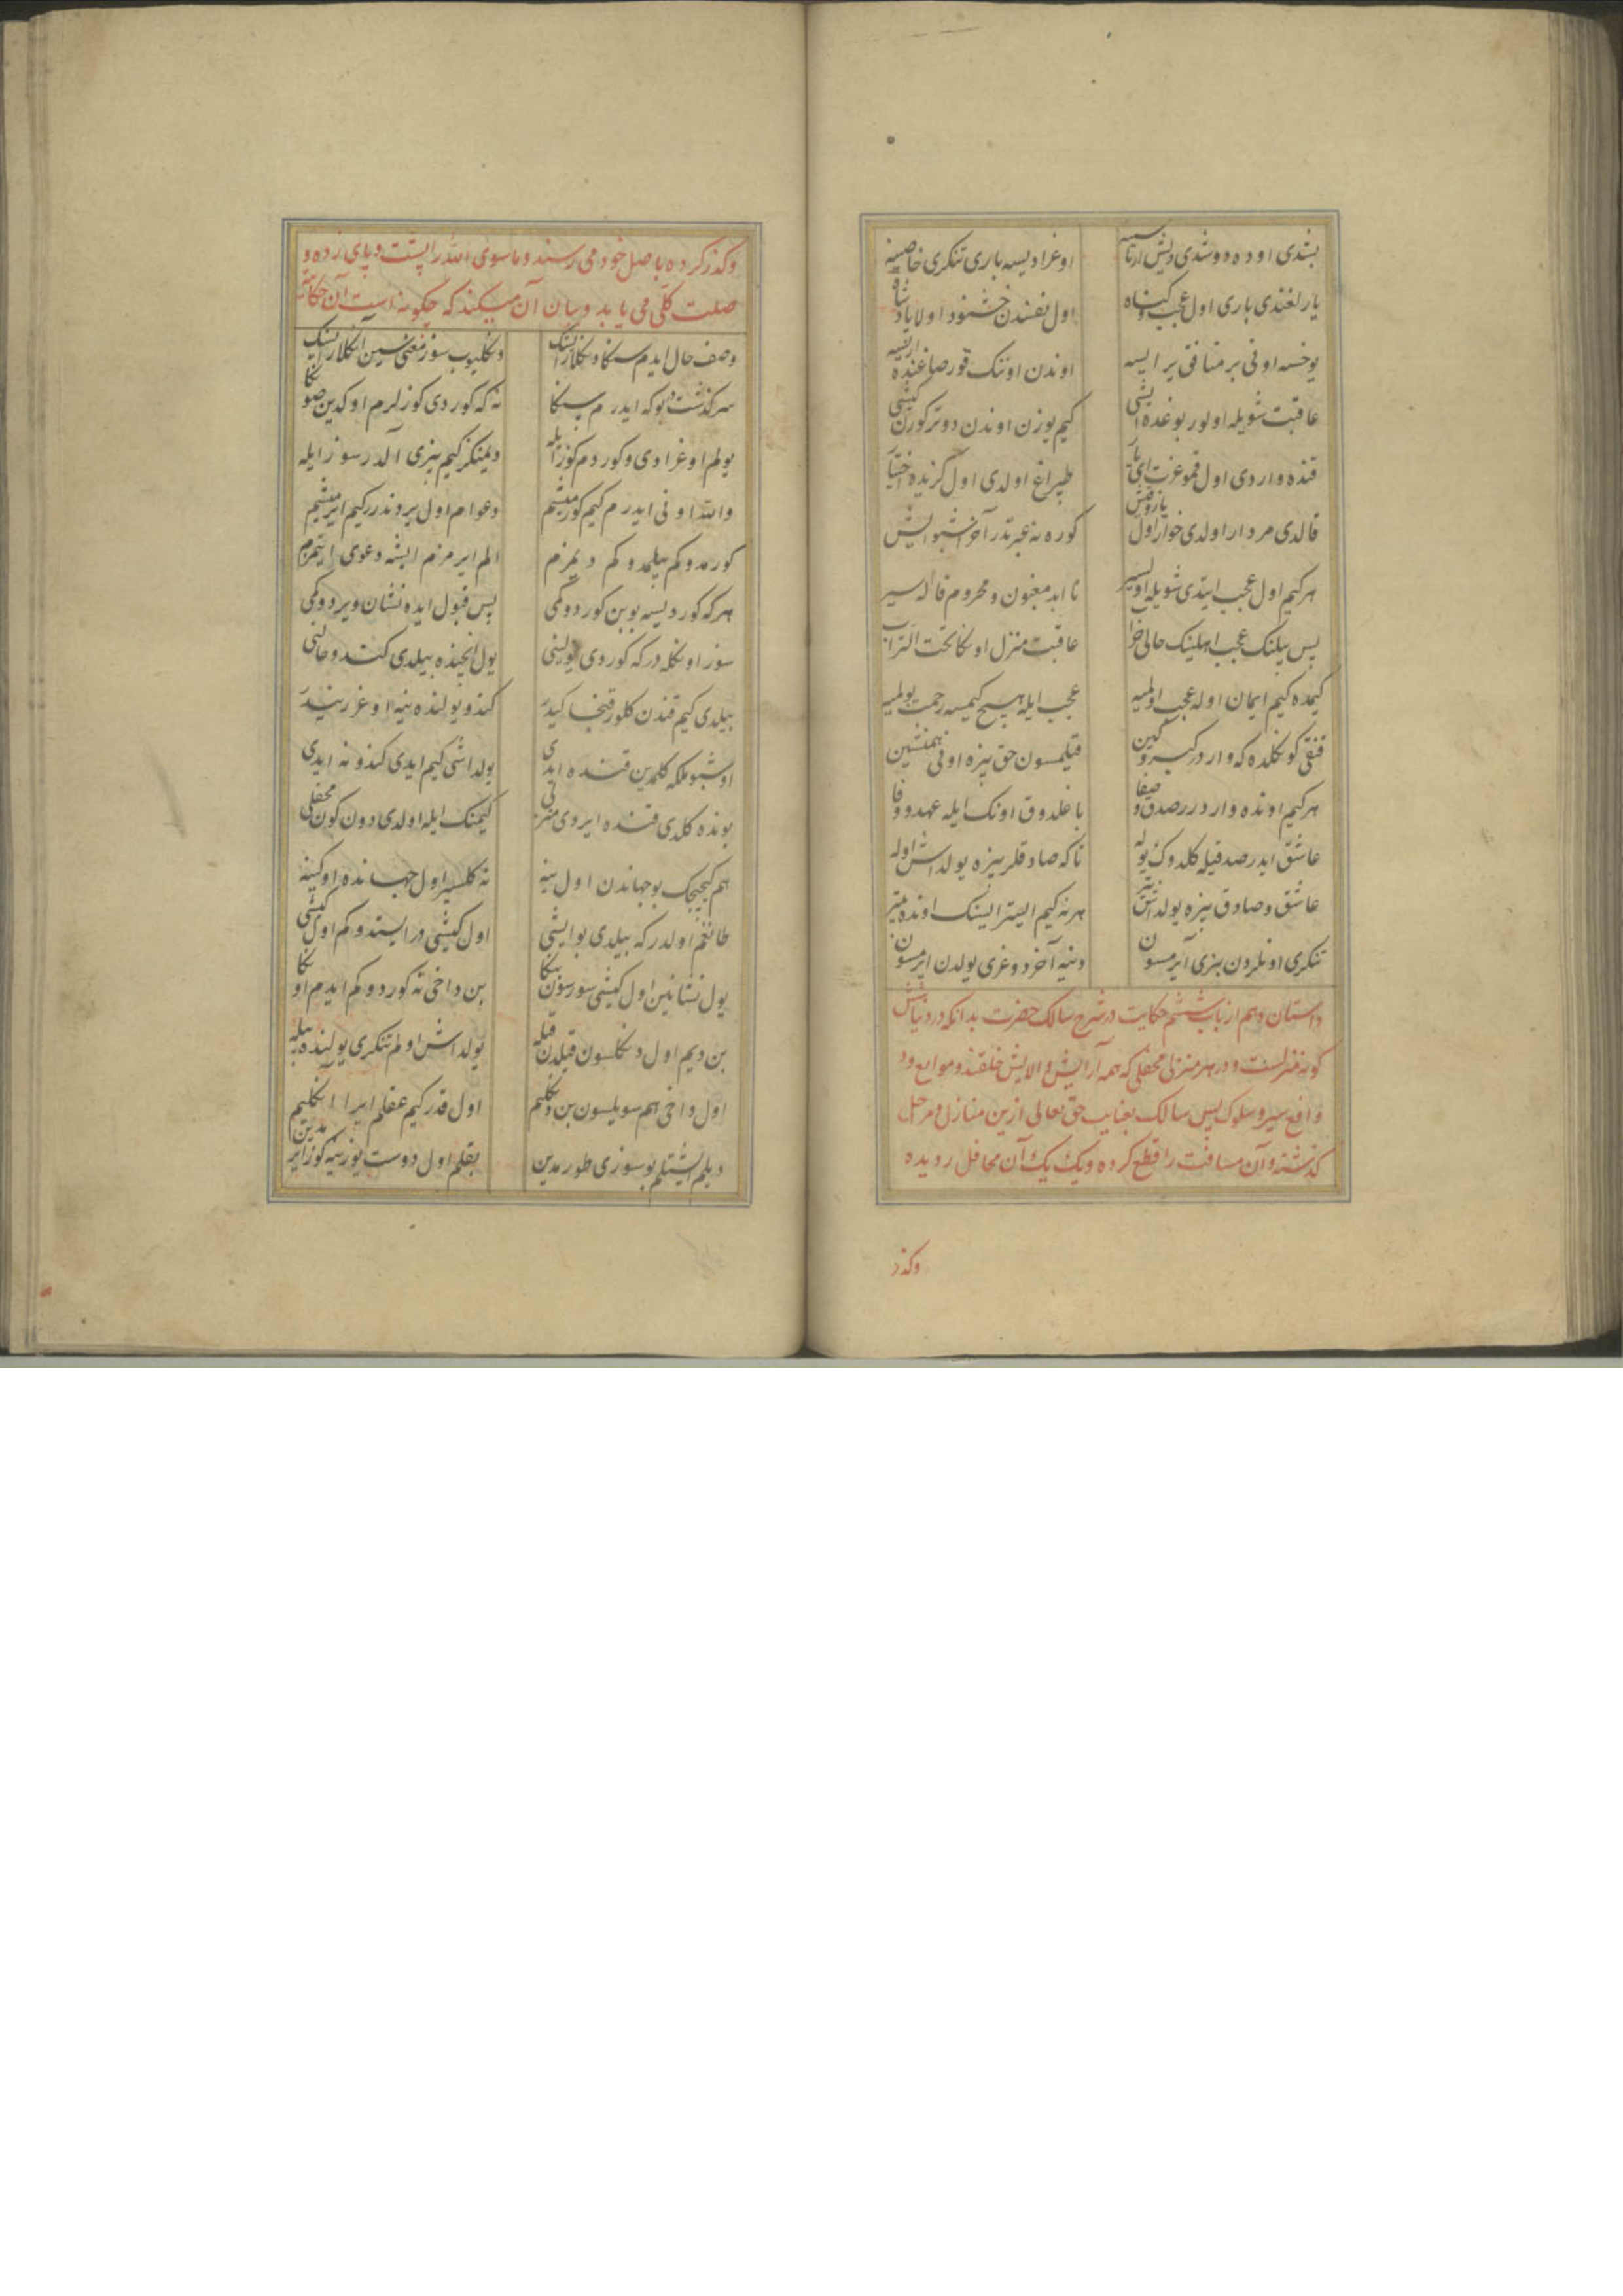 بتدی اوده دوشدی دیش ارتاسنه اوغرادیسه باری تنکری خاصینه
یارلغندی باری اول عجب و کناه اول نفسندن خشنود اولا پادشاه
یوخسه اونی بر منافق یر ایسه اوندن اوننک قورصاغنده اریسه
عاقبت شویله اولور بوغده ایشی کیم یوزن اوندن دوتر کورن کیشی
قنده واردی اول قمو عزت ای یار طپراغ اولدی اول کزیده اختیار
قالدی مردار اولدی خوار اول یاز و قیش کوره نه عبرتدر آخر اشبو ایش
هر کیم اول عجب ایتدی شویله اولیسر تا ابد مغبون و محروم قالیسر
پس بیلنک عجب اهلینک حالی خراب عاقبت منزل اونکا تحت التراب
کیمده کیم ایمان اوله عجب اولمیه عجب ایله هیچ کیمسه رحمت بولمیه
قنقی کونکلده که واردر کبر و کین قیلمسون حق بیزه اونی همنشین
هر کیم اونده واردر صدق و صفا باغلدوق اونک ایله عهد و وفا
عاشق ایدر صدقیله کلدوک یوله تا که صادقلر بیزه یولداش اوله
عاشق و صادق بیزه یولداش یتر هر نه کیم ایستر ایسنک اونده بیتر
تنکری اونلردن بیزی آیرمسون دنیه آخر دوغری یولدن ایرمسون
داستان دهم از باب ششم حکایت در شرح سالک حضرت بدانکه در دنیا شش
کونه منزلست و در هر منزلی محفلی که همه آرایش و الایش خلقند و موانع ود
وافع سیر و سلوک پس سالک بعنایت حق تعالی ازین منازل و مراحل
کذشته و آن مسافت را قطع کرده و یک یک آن محافل رو دیده
وکذر
وکذر کرده باصل خود می رسند و ماسوی الله را پشت و پای زده و
صلت کلی می یابد و بیان آن میکند که چکونه است آن حکایت
وصف حال ایدم سکا دکلارایسنک دنکلیوب سوز معنی سین انکلارایسنک
سرکذشت بو که ایدرم سکا نه که کوردی کوزلرم اوکدین صونکا
یولم اوغرادی و کوردم کوزایله دیمنکز کیم بیزی آلدر سوز ایله
والله اونی ایدرم کیم کورمیشم دعوام اول یردندر کیم ایرمیشم
کورمدوکم بیلمدوکم دیمزم الم ایرمزم ایشه دعوی ایتمزم
هر که کوردیسه بو بن کوردوکمی پس قبول ایده نشان ویردوکمی
سوز اونکله در که کوردی یولینی یول ایچنده بیلدی کندو حالینی
بیلدی کیم قندن کلور قنجا کیدر کندو یولنده نیه اوغر نیدر
اوشبو ملکه کلمدین قنده ایدی یولداشی کیم ایدی کندو نه ایدی
بونده کلدی قنده ایردی منزلی کیمنک ایله اولدی دون کون محفلی
هم کیچیجک بو جهاندن اول ینه نه کلسیر اول جهانده اوکینه
طانغم اولدر که بیلدی بو ایشی اول کیشی در ایستدوکم اول کیشی
یول نشانین اول کیشی سورسون بنکا بن داخی نه کوردوکم ایدم اونکا
بن دیم اول دنکلسون قیلدن قیله یولداش اولم تنکری یولنده بیله
اول داخی هم سویلسون بن دنکلیم اول قدر کیم عقلم ایرا انکلیم
دیلم ایشیتلم بو سوزی طورمدین بقلم اول دوست یوزینه کوز ایرمدین